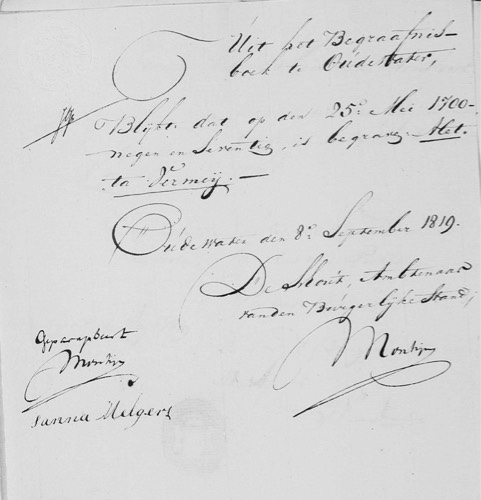 Uit het Begraafnis-
boek te Oudewater,
Blijkt dat op den 25e Mei 1700-
negen en Seventig, is begraven Alet-
ta Vermeij.—
Oudewater den 8e September 1819.
De Ambtenaar
van den Burgerlijke Stand,
Montijn
Geparapheert
Montijn
Sanna Milgers